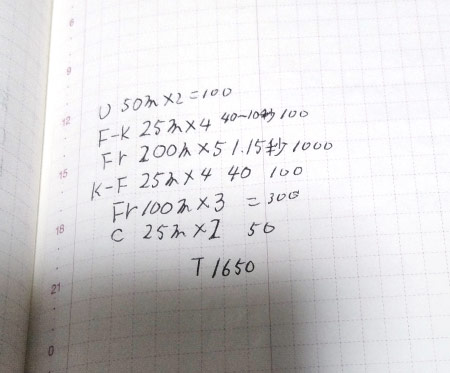 6
9
12
15
18
21
0
U 50m×2=100
F-K 25m×4 40~10秒 100
Fr 200m×5 1.15秒 1000
K-F 25m×4 40 100
Fr 100m×3 =300
C 25m×2 50
T 1650